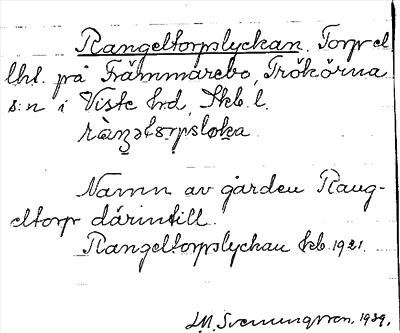 Rangeltorpslyckan. Torp el
lht. på Främmarebo, Trökörna
s:n i Viste hd, Skb. l.
ràŋ̠əltɷrpsløka
Namn av gården Rang-
eltorp därintill.
Rangeltorpslyckan kb. 1921.
J.M. Svenungsson. 1939.